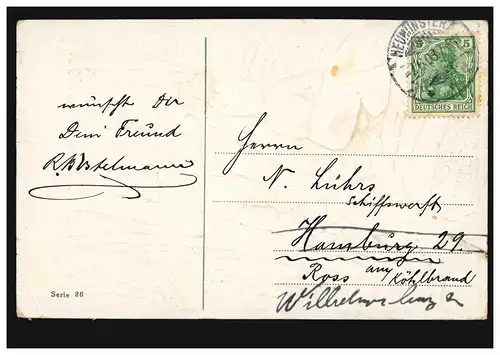 NEUMÜNSTER
5
DEUTSCHES REICH
wünscht Dir
Dein Freund
Herrn
N. Lührs
Schiffswerft
Hamburg 29.
Ross am Köhlbrand
Wilhelmsburg
Serie 26